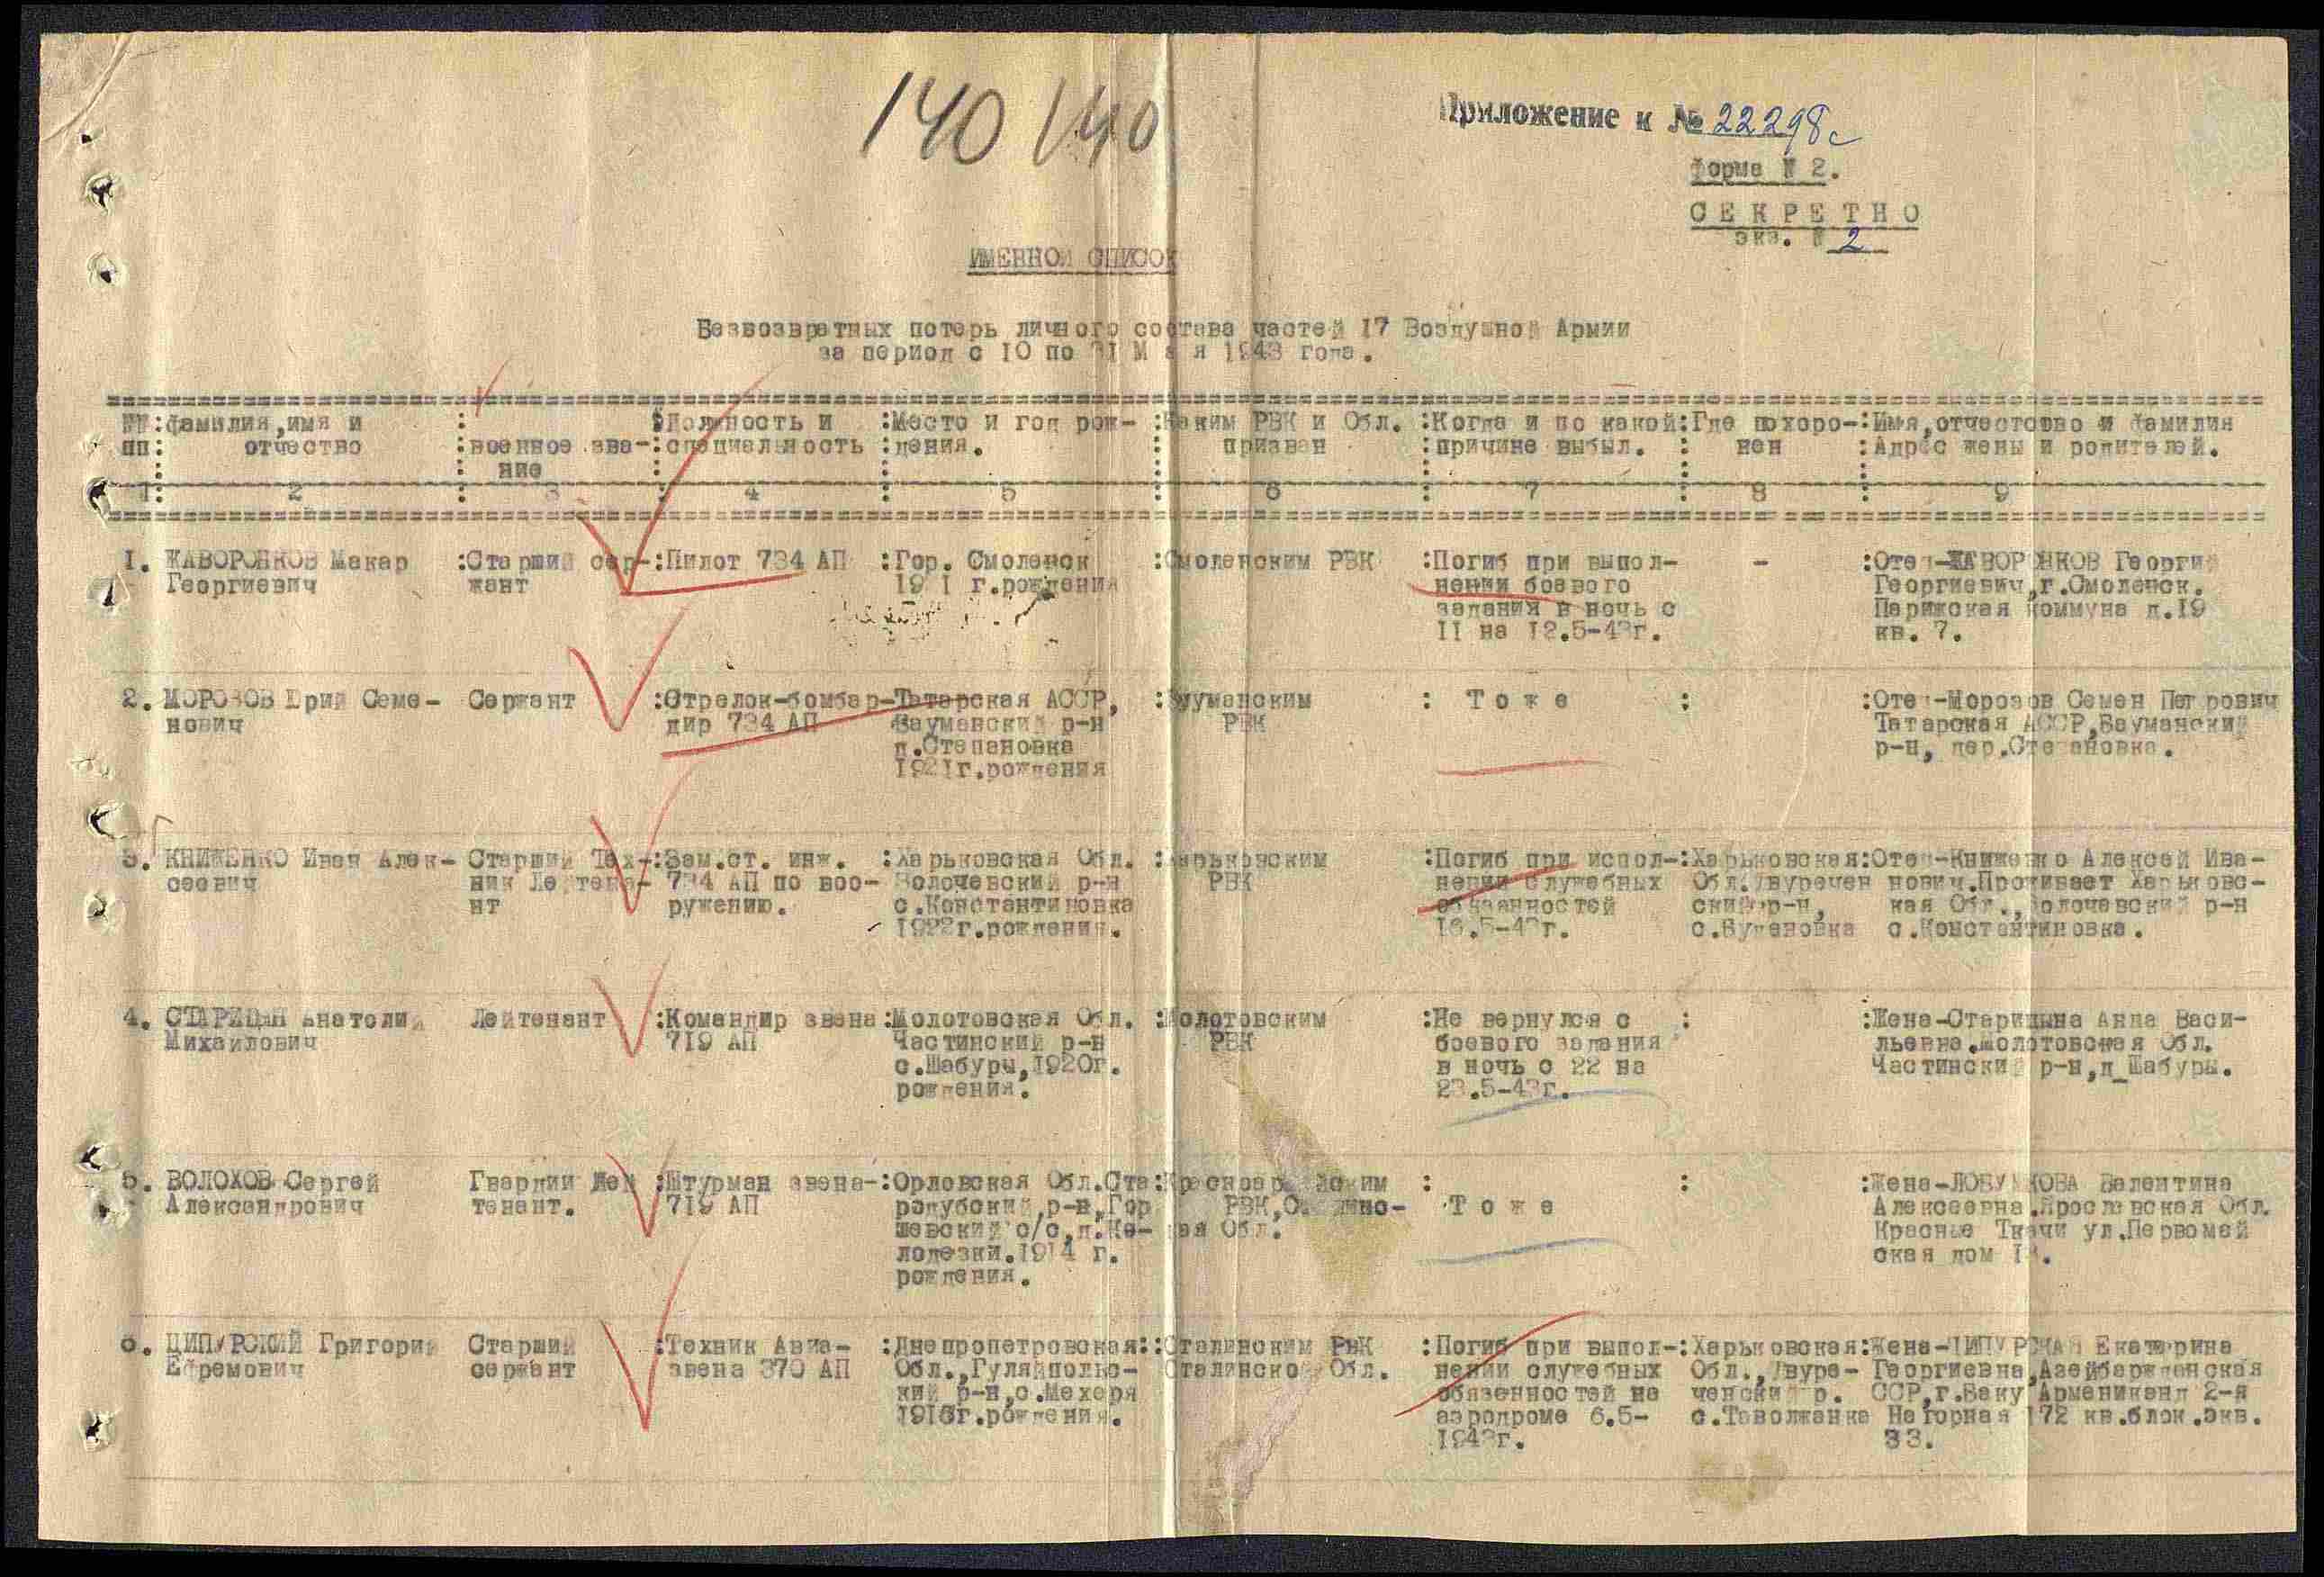 140 140
Приложение к № 22298с
форма № 2.
СЕКРЕТНО
экз. № 2
ИМЕННОЙ СПИСОК
Безвозвратных потерь личного состава частей 17 Воздушной Армии
за период с 10 по 31 М а я 1943 года.
№№ : фамилия, имя и : : Должность и : Место и год рож- : Каким РВК и Обл. : Когда и по какой : Где похоро- : Имя, отчество и фамилия
пп : отчество : военное зва- : специальность : дения. : призван : причине выбыл. : нен : Адрес жены и родителей.
ние
1 : 2 : 3 : 4 : 5 : 6 : 7 : 8 : 9
1. ЖАВОРОНКОВ Макар :Старший сер- :Пилот 734 АП :Гор. Смоленск :Смоленским РВК :Погиб при выпол- - :Отец-ЖАВОРОНКОВ Георгий
Георгиевич жант г.рождения нении боевого Георгиевич, г.Смоленск.
задания в ночь с Парижская коммуна д.19
11 на 12.5-43г. кв. 7.
2. МОРОЗОВ Юрий Семе- Сержант :Стрелок-бомбар- Татарская АССР, :Бауманским : Т о ж е : :Отец-Морозов Семен Петрович
нович дир 734 АП Бауманский р-н РВК Татарская АССР, Бауманский
д.Степановка р-н, дер.Степановка.
1921г.рождения
3. КНИЖЕНКО Иван Алек- Старший Тех- :Зам.ст. инж. :Харьковская Обл. :Харьковским :Погиб при испол- :Харьковская :Отец-Книженко Алексей Ива-
сеевич ник Лейтена- 734 АП по воо- Золочевский р-н РВК нении служебных Обл. Двуречен нович.Проживает Харьковс-
нт ружению. с.Константиновка обязанностей ский р-н, кая Обл., Золочевский р-н
1922г.рождения. 16.5-43г. с.Будановка с.Константиновка.
4. СТАРИЦЫН Анатолий Лейтенант :Командир звена :Молотовская Обл. :Молотовским :Не вернулся с : :Жена-Старицына Анна Васи-
Михайлович 719 АП Частинский р-н РВК боевого задания льевна.Молотовская Обл.
с.Шабуры, 1920г. в ночь с 22 на Частинский р-н, д_Шабуры.
рождения. 23.5-43г.
5. ВОЛОХОВ Сергей Гвардии Лей :Штурман звена- :Орловская Обл.Ста :Красноар ским : : :Жена- Валентина
Александрович тенант. 719 АП родубский, р-н, Гор РВК, - Т о ж е Алексеевна.Ярославская Обл.
шевский с/с, д.Ко- кая Обл. Красные Ткачи ул.Первомай
лодезки.1914 г. ская дом
рождения.
6. ЦИПУРСКИЙ Григорий Старший :Техник Авиа- :Днепропетровская: :Сталинским РВК :Погиб при выпол- :Харьковская :Жена-ЦИПУРСКАЯ Екатерина
Ефремович сержант звена 370 АП Обл., Гуляйпольс- Сталинской Обл. нении служебных Обл., Двуре- Георгиевна, Азейбарджанская
кий р-н, с.Мехеря обязенностей на ченский р. ССР, г.Баку Арменикенд 2-я
1916г.рождения. аэродроме 6.5- с.Таволжанка Нагорная 172 кв.блок.экв.
1943г. 33.